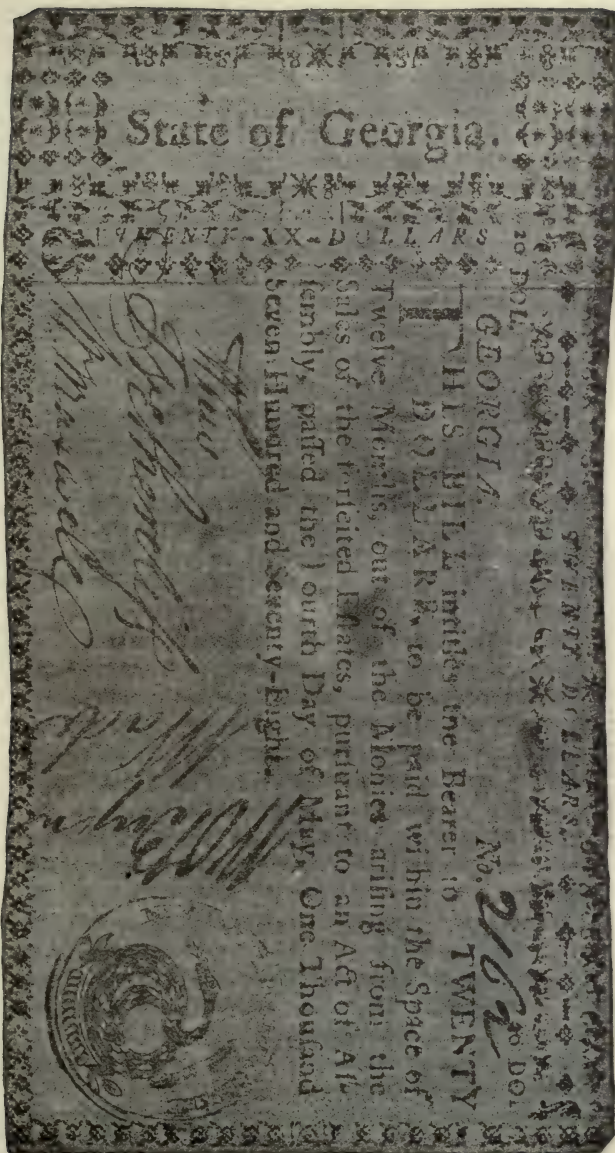 State of Georgia.
TWENTY-XX-DOLLARS
TWENTY DOLLARS.
20 DOL.
20 DOL.
GEORGIA.
No. 2162
THIS BILL intitles the Bearer to TWENTY
DOLLARS, to be paid within the Space of
Twelve Months, out of the Monies arising from the
Sales of the forfeited Estates, pursuant to an Act of As-
sembly, passed the Fourth Day of May, One Thousand
Seven Hundred and Seventy-Eight.
Wm
Maxwell
Wade